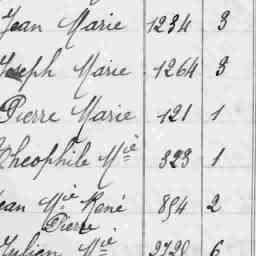 Jean Marie 1234 3
Joseph Marie 1264 3
Pierre Marie 121 1
Théophile Mie 323 1
Jean Mie René 894 2
Pierre
Julien Mie 2728 6